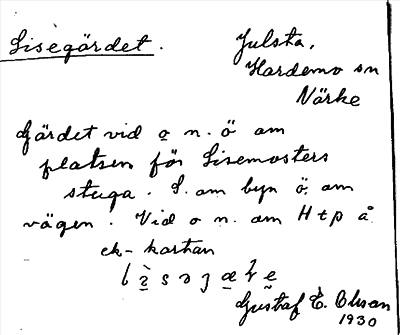 Lisegärdet.
Julsta,
Hardemo sn
Närke
Gärdet vid o n. ö om
platsen för Lisemosters
stuga. S. om byn ö. om
vägen. Vid o n. om Htp å
ek-kartan
Gustaf E. Olsson
1930